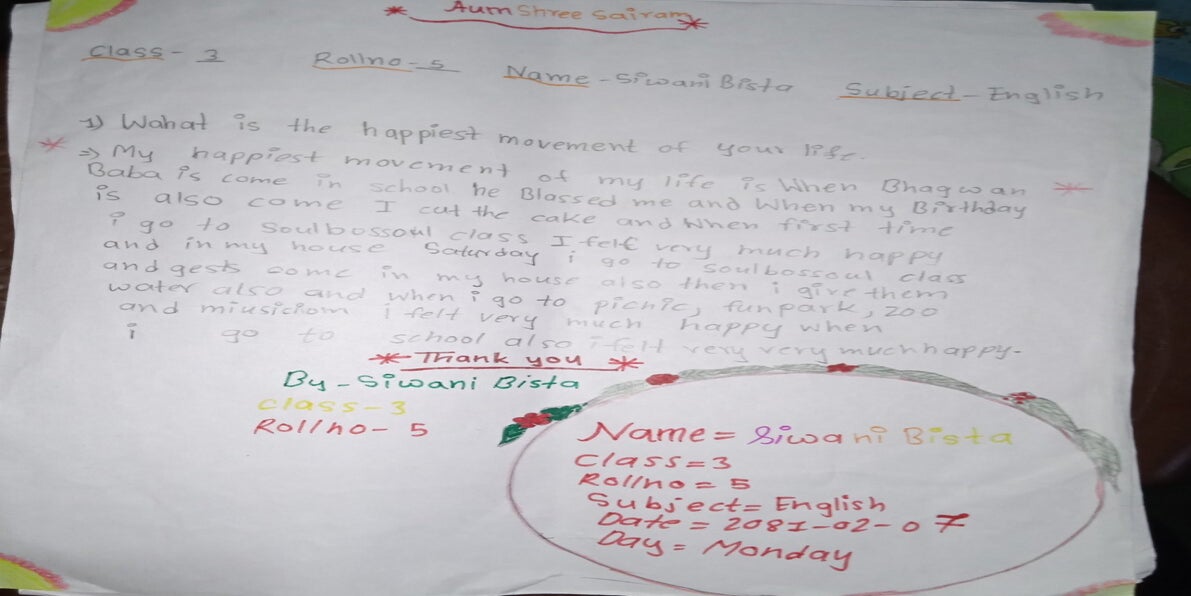 Aum Shree Sairam
Class - 3 Rollno - 5 Name - Siwani Bista Subject - English
1) Wahat is the happiest movement of your life.
⇒ My happiest movement of my life is When Bhagwan
Baba is come in school he Blassed me and When my Birthday
is also come I cut the cake and When first time
i go to Soulbossoul class I felt very much happy
and in my house Saturday i go to soulbossoul class
and gests come in my house also then i give them
water also and when i go to picnic, funpark, zoo
and miusiciom i felt very much happy when
i go to school also i felt very very much happy-
Thank you
By - Siwani Bista
Class - 3
Rollno - 5
Name = Siwani Bista
Class = 3
Rollno = 5
Subject = English
Date = 2081-02-07
Day = Monday